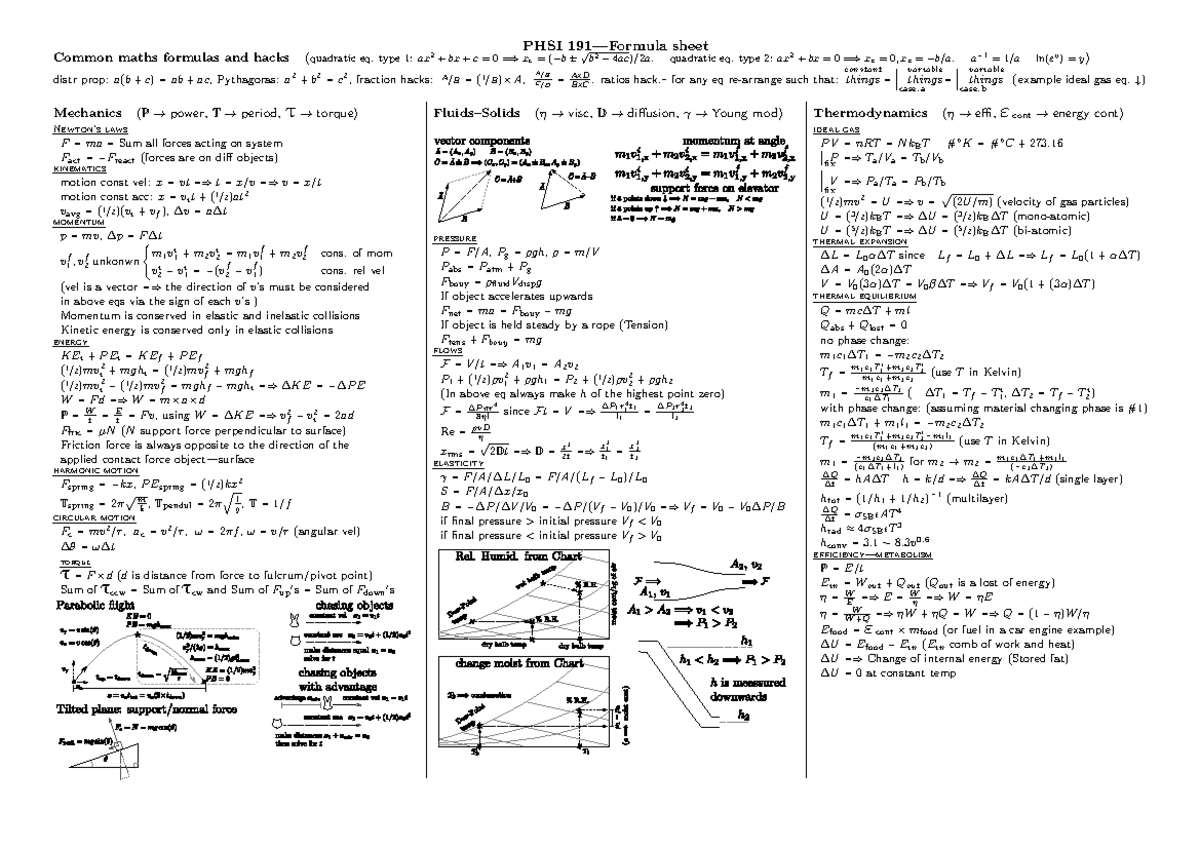 PHSI 191—Formula sheet
Common maths formulas and hacks (quadratic eq. type 1: ax² + bx + c = 0 ⟹ x± = (−b ± √(b² − 4ac))/2a. quadratic eq. type 2: ax² + bx = 0 ⟹ x± = 0, x± = −b/a. a⁻¹ = 1/a ln(eʸ) = y)
distr prop: a(b + c) = ab + ac, Pythagoras: a² + b² = c², fraction hacks: A/B = (1/B) × A, (A/B)/(C/D) = (A×D)/(B×C). ratios hack.– for any eq re-arrange such that: constant things = variable things|case.a = variable things|case.b (example ideal gas eq. ↓)
Mechanics (ℙ → power, T → period, τ → torque)
NEWTON'S LAWS
F = ma = Sum all forces acting on system
Fact = −Freact (forces are on diff objects)
KINEMATICS
motion const vel: x = vt ⟹ t = x/v ⟹ v = x/t
motion const acc: x = vᵢt + (1/2)at²
vavg = (1/2)(vᵢ + vf), Δv = aΔt
MOMENTUM
p = mv, Δp = FΔt
v₁ᶠ, v₂ᶠ unkonwn { m₁v₁ⁱ + m₂v₂ⁱ = m₁v₁ᶠ + m₂v₂ᶠ cons. of mom
v₂ⁱ − v₁ⁱ = −(v₂ᶠ − v₁ᶠ) cons. rel vel
(vel is a vector ⟹ the direction of v's must be considered
in above eqs via the sign of each v's )
Momentum is conserved in elastic and inelastic collisions
Kinetic energy is conserved only in elastic collisions
ENERGY
KEᵢ + PEᵢ = KEf + PEf
(1/2)mvᵢ² + mghᵢ = (1/2)mvf² + mghf
(1/2)mvᵢ² − (1/2)mvf² = mghf − mghᵢ ⟹ ΔKE = −ΔPE
W = Fd ⟹ W = m×a×d
ℙ = W/t = E/t = Fv, using W = ΔKE ⟹ vf² − vᵢ² = 2ad
Ffric = μN (N support force perpendicular to surface)
Friction force is always opposite to the direction of the
applied contact force object—surface
HARMONIC MOTION
Fspring = −kx, PEspring = (1/2)kx²
Tspring = 2π√(m/k), Tpendul = 2π√(l/g), T = 1/f
CIRCULAR MOTION
Fc = mv²/r, ac = v²/r, ω = 2πf, ω = v/r (angular vel)
Δθ = ωΔt
TORQUE
τ = F×d (d is distance from force to fulcrum/pivot point)
Sum of τccw = Sum of τcw and Sum of Fup's = Sum of Fdown's
Parabolic flight
Tilted plane: support/normal force
chasing objects
make distances equal x₁ = x₂
solve for t
chasing objects
with advantage
then solve for t
Fluids–Solids (η → visc, D → diffusion, γ → Young mod)
vector components
momentum at angle
m₁v₁,ₓⁱ + m₂v₂,ₓⁱ = m₁v₁,ₓᶠ + m₂v₂,ₓᶠ
m₁v₁,yⁱ + m₂v₂,yⁱ = m₁v₁,yᶠ + m₂v₂,yᶠ
support force on elevator
PRESSURE
P = F/A, Pg = ρgh, ρ = m/V
Pabs = Patm + Pg
Fbouy = ρfluidVdispg
If object accelerates upwards
Fnet = ma = Fbouy − mg
If object is held steady by a rope (Tension)
Ftens + Fbouy = mg
FLOWS
F = V/t ⟹ A₁v₁ = A₂v₂
P₁ + (1/2)ρv₁² + ρgh₁ = P₂ + (1/2)ρv₂² + ρgh₂
(In above eq always make h of the highest point zero)
F = ΔPπr⁴/8ηl since Ft = V ⟹ ΔP₁r₁⁴t₁/l₁ = ΔP₂r₂⁴t₂/l₂
Re = ρvD/η
xrms = √(2Dt) ⟹ D = x²/2t ⟹ x₁²/t₁ = x₂²/t₂
ELASTICITY
γ = F/A/ΔL/L₀ = F/A/(Lf − L₀)/L₀
S = F/A/Δx/x₀
B = −ΔP/ΔV/V₀ = −ΔP/(Vf − V₀)/V₀ ⟹ Vf = V₀ − V₀ΔP/B
if final pressure > initial pressure Vf < V₀
if final pressure < initial pressure Vf > V₀
Rel. Humid. from Chart
wet bulb temp
% R.H.
Dew-Point temp
% R.H.
dry bulb temp
dry bulb temp
change moist from Chart
% R.H.
A₂, v₂
F ⟹
⟹ F
A₁, v₁
A₁ > A₂ ⟹ v₁ < v₂
⟹ P₁ > P₂
h₁
h₁ < h₂ ⟹ P₁ > P₂
h is measured
downwards
h₂
Thermodynamics (η → effi, ℰcont → energy cont)
IDEAL GAS
PV = nRT = NkBT #°K = #°C + 273.16
|fix P ⟹ Tₐ/Vₐ = Tb/Vb
|fix V ⟹ Pₐ/Tₐ = Pb/Tb
(1/2)mv² = U ⟹ v = √((2U/m) (velocity of gas particles)
U = (3/2)kBT ⟹ ΔU = (3/2)kBΔT (mono-atomic)
U = (5/2)kBT ⟹ ΔU = (5/2)kBΔT (bi-atomic)
THERMAL EXPANSION
ΔL = L₀αΔT since Lf = L₀ + ΔL ⟹ Lf = L₀(1 + αΔT)
ΔA = A₀(2α)ΔT
V = V₀(3α)ΔT = V₀βΔT ⟹ Vf = V₀(1 + (3α)ΔT)
THERMAL EQUILIBRIUM
Q = mcΔT + ml
Qabs + Qlost = 0
no phase change:
m₁c₁ΔT₁ = −m₂c₂ΔT₂
Tf = (m₁c₁T₁ⁱ + m₂c₂T₂ⁱ)/(m₁c₁ + m₂c₂) (use T in Kelvin)
m₁ = −m₂c₂ΔT₂/c₁ΔT₁ ( ΔT₁ = Tf − T₁ⁱ, ΔT₂ = Tf − T₂ⁱ)
with phase change: (assuming material changing phase is #1)
m₁c₁ΔT₁ + m₁l₁ = −m₂c₂ΔT₂
Tf = (m₁c₁T₁ⁱ + m₂c₂T₂ⁱ − m₁l₁)/(m₁c₁ + m₂c₂) (use T in Kelvin)
m₁ = −m₂c₂ΔT₂/(c₁ΔT₁ + l₁) for m₂ → m₂ = (m₁c₁ΔT₁ + m₁l₁)/(−c₂ΔT₂)
ΔQ/Δt = hAΔT h = k/d ⟹ ΔQ/Δt = kAΔT/d (single layer)
htot = (1/h₁ + 1/h₂)⁻¹ (multilayer)
ΔQ/Δt = σSBεAT⁴
hrad ≈ 4σSBεT³
hconv = 3.1 − 8.3v⁰·⁶
EFFICIENCY—METABOLISM
ℙ = E/t
Ein = Wout + Qout (Qout is a lost of energy)
η = W/E ⟹ E = W/η ⟹ W = ηE
η = W/(W+Q) ⟹ ηW + ηQ = W ⟹ Q = (1 − η)W/η
Efood = ℰcont × mfood (or fuel in a car engine example)
ΔU = Efood − Ein (Ein comb of work and heat)
ΔU ⟹ Change of internal energy (Stored fat)
ΔU = 0 at constant temp